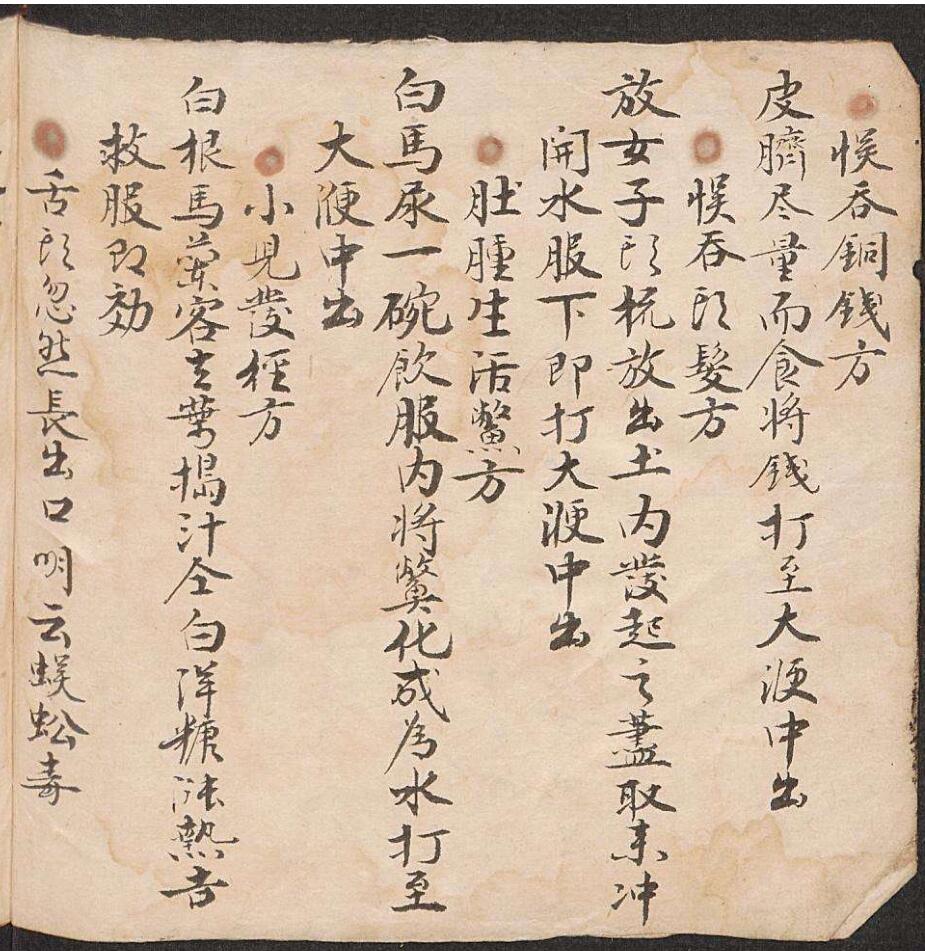 悮吞銅錢方
皮臍尽量而食将錢打至大便中出
悮吞头髮方
放女子头梳放出土内發起之蓋取末冲
開水服下即打大便中出
肚腫生活鱉方
白馬尿一碗飲服内将鱉化成為水打至
大便中出
小児發經方
白根馬蘭客葉搗汁仝白洋糖熱
救服即効
舌头忽然長出口 明云蜈蚣毒